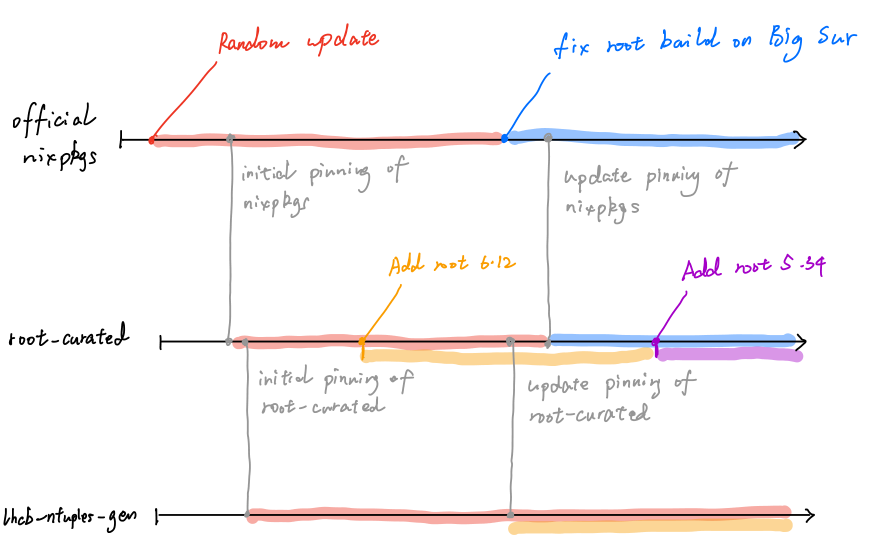 Random update
fix root baild on Big Sur
official
nixpkgs
initial pinning of
nixpkgs
update pinning of
nixpkgs
Add root 6.12
Add root 5.34
root-curated
initial pinning of
root-curated
update pinning of
root-curated
lhcb-ntuples-gen